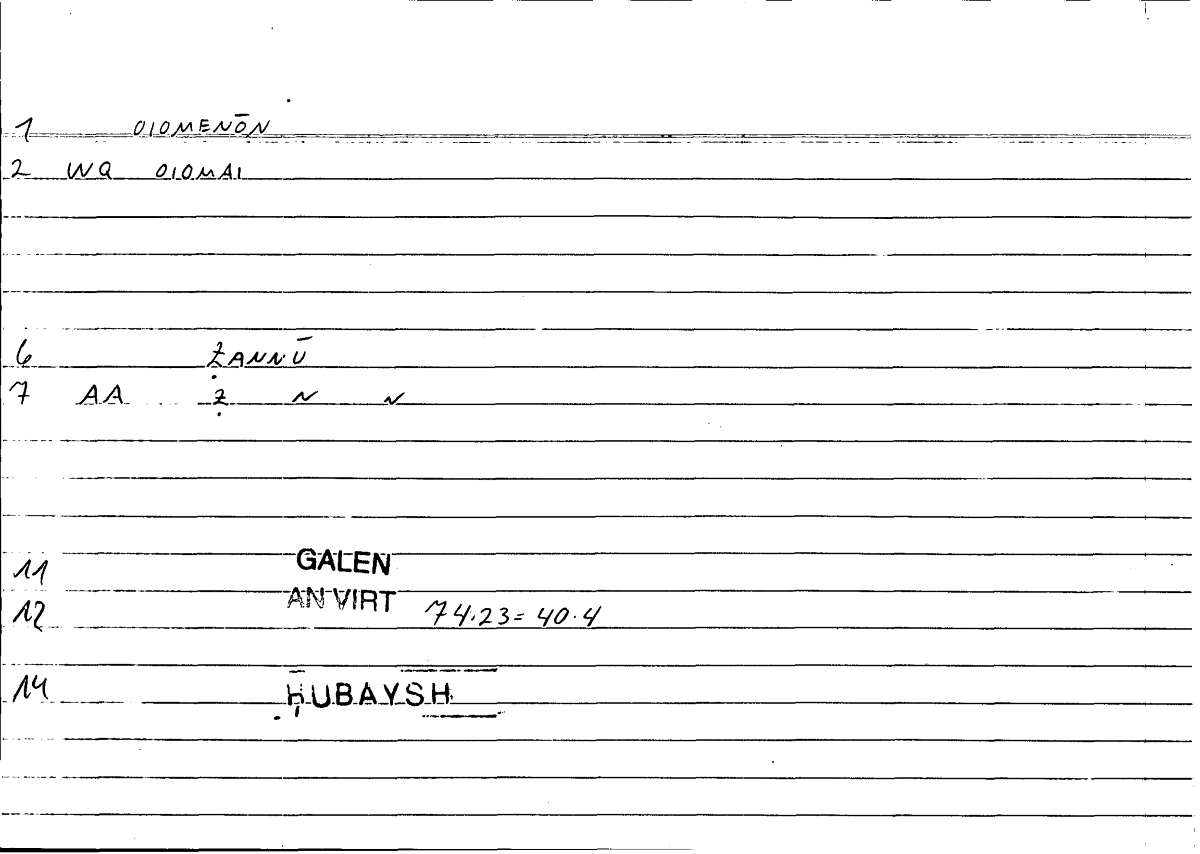 1 OIOMENŌN
2 WQ OIOMAI
6 ẒANNŪ
7 AA Ẓ N N
11 GALEN
12 AN VIRT 74.23=40.4
14 ḤUBAYSH